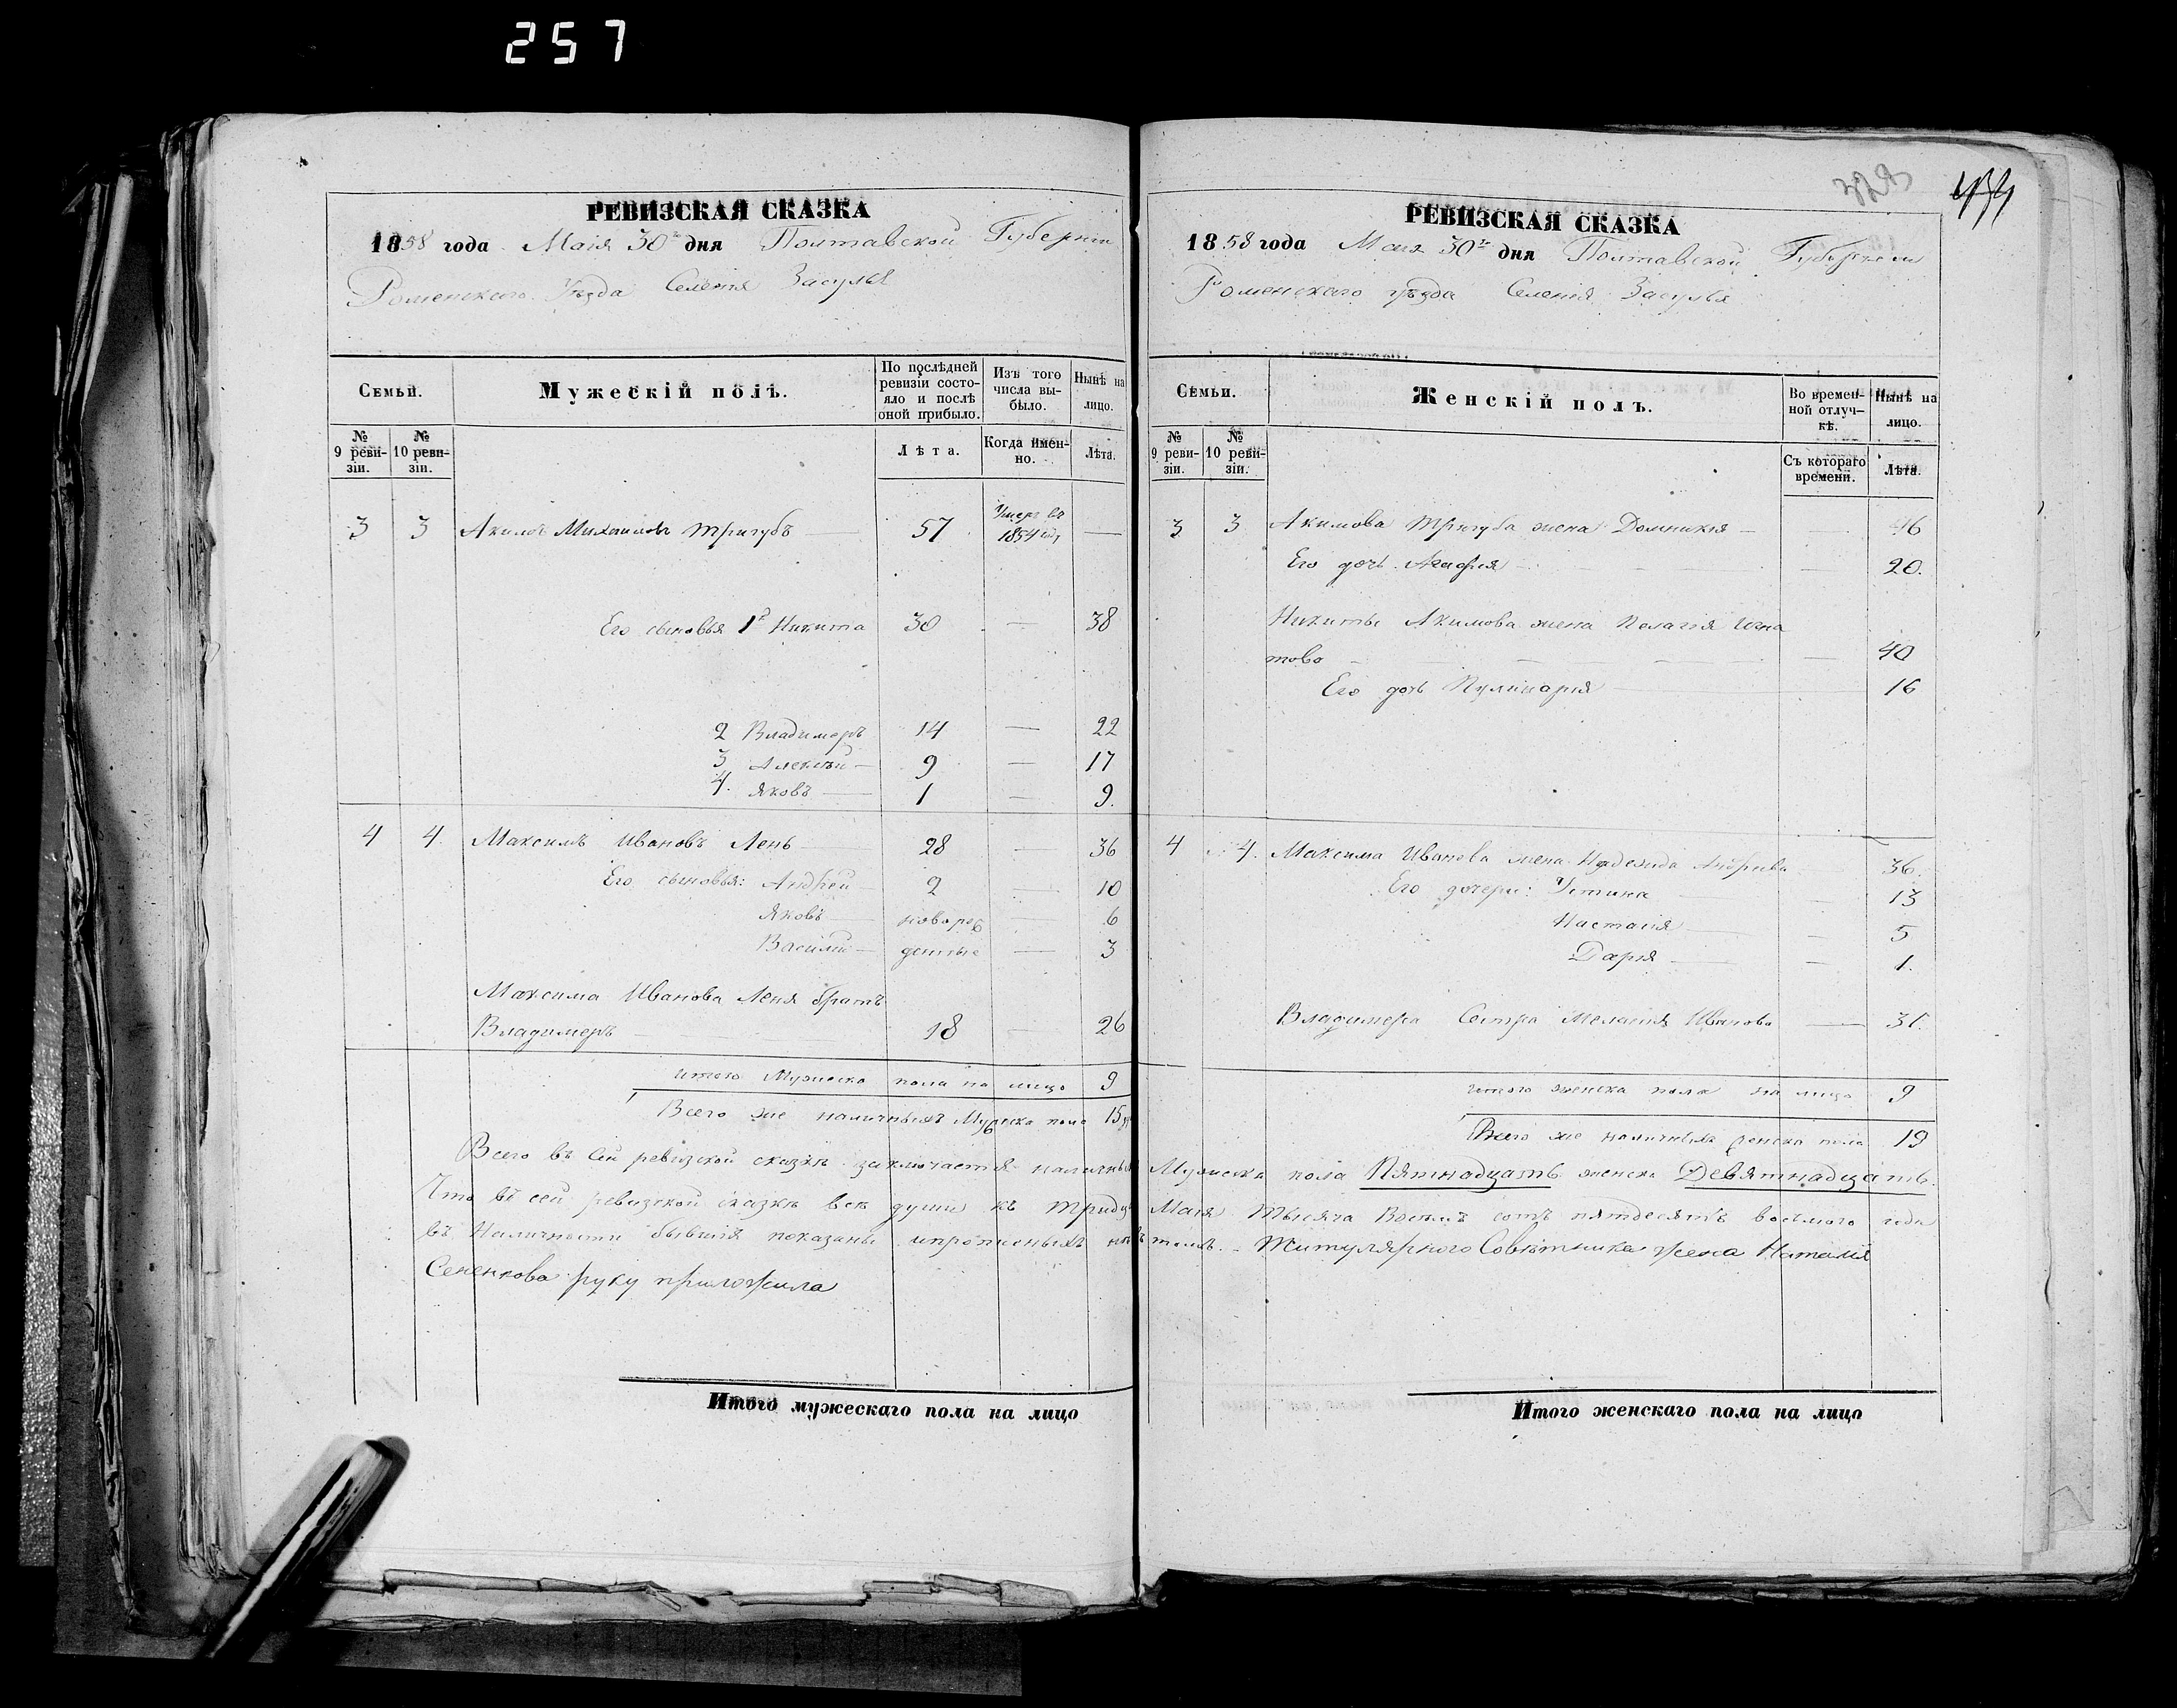 257
РЕВИЗСКАЯ СКАЗКА
1858 года Маія 30 дня Полтавской Губерніи
Роменскаго Уѣзда Селенія Засулья
Семьи.
Мужескій полъ.
По послѣдней ревизіи состо-
яло и послѣ
оной прибыло.
Изъ того
числа вы-
было.
Нынѣ на
лицо.
№
9 реви-
зіи.
№
10 реви-
зіи.
Лѣта.
Когда имен-
но.
Лѣта.
3 3 Акимъ Михаиловъ Тригубъ 57 Умеръ въ 1854
Его сыновья 1й Никита 30 — 38
2 Владимеръ 14 — 22
3 Алексѣй 9 — 17
4. Яковъ 1 — 9.
4 4. Максимъ Ивановъ Лень 28 — 36
Его сыновья: Андрей 2 — 10
Яковъ новорож — 6
Василий денные — 3
Максима Иванова Леня братъ
Владимеръ 18 — 26
Итого Мужеска пола на лицо 9
Всего же наличныхъ Мужеска пола 15
Итого мужескаго пола на лицо
РЕВИЗСКАЯ СКАЗКА
1858 года Мая 30 дня Полтавской Губерніи
Роменскаго уѣзда Селенія Засулья
Семьи.
Женскій полъ.
Во времен-
ной отлуч-
кѣ.
Нынѣ на
лицо.
№
9 реви-
зіи.
№
10 реви-
зіи.
Съ котораго
времени.
Лѣта.
3 3 Акимова Тригуба жена Домникія — 46
Его дочь Агафия — 20.
Никиты Акимова жена Пелагея Игна
това — 40
Его дочь Пулинария 16
4 4. Максима Иванова жена Надежда Андреева 36.
Его дочери: Устина — 13
Настасия — 5
Дарія — 1.
Владимера Сестра Меланія Иванова — 31.
Итого женска пола на лицо 9
Всего же наличныхъ женска пола 19
Всего въ сей ревизской сказкѣ заключается наличныхъ Мужеска пола Пятнадцать женска Девятнадцать.
Что въ сей ревизской сказкѣ всѣ души къ Мая Тысяча Восемь сотъ пятдесятъ восьмого года
въ Наличности бывшія показаны и прописныхъ Титулярного Совѣтника жена Наталія
Сененкова руку приложила
Итого женскаго пола на лицо